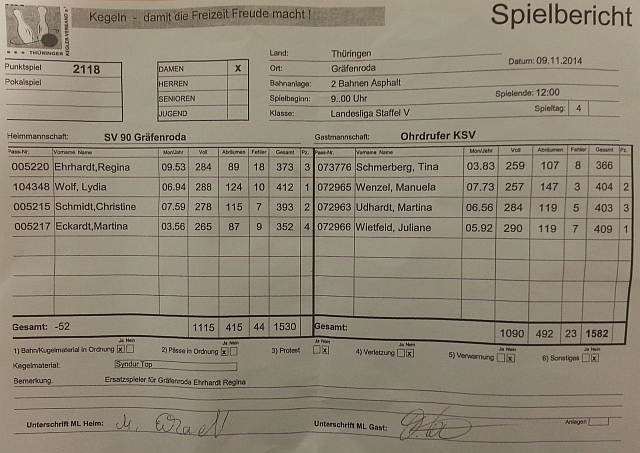 Kegeln - damit die Freizeit Freude macht !
Spielbericht
THÜRINGER
KEGLER-VERBAND e.V.
Punktspiel 2118
Pokalspiel
DAMEN X
HERREN
SENIOREN
JUGEND
Land: Thüringen
Ort: Gräfenroda Datum: 09.11.2014
Bahnanlage: 2 Bahnen Asphalt
Spielbeginn: 9..00 Uhr Spielende: 12:00
Klasse: Landesliga Staffel V Spieltag: 4
Heimmannschaft: SV 90 Gräfenroda Gastmannschaft: Ohrdrufer KSV
Pass-Nr. Vorname Name Mon/Jahr Voll Abräumen Fehler Gesamt Pz. Pass-Nr. Vorname Name Mon/Jahr Voll Abräumen Fehler Gesamt Pz.
005220 Ehrhardt,Regina 09.53 284 89 18 373 3 073776 Schmerberg, Tina 03.83 259 107 8 366
104348 Wolf, Lydia 06.94 288 124 10 412 1 072965 Wenzel, Manuela 07.73 257 147 3 404 2
005215 Schmidt,Christine 07.59 278 115 7 393 2 072963 Udhardt, Martina 06.56 284 119 5 403 3
005217 Eckardt,Martina 03.56 265 87 9 352 4 072966 Wietfeld, Juliane 05.92 290 119 7 409 1
Gesamt: -52 1115 415 44 1530 Gesamt: 1090 492 23 1582
Ja Nein Ja Nein Ja Nein Ja Nein Ja Nein Ja Nein
1) Bahn/Kugelmaterial in Ordnung x 2) Pässe in Ordnung x 3) Protest x 4) Verletzung x 5) Verwarnung x 6) Sonstiges x
Kegelmaterial: Syndur Top
Bemerkung. Ersatzspieler für Gräfenroda Ehrhardt Regina
Unterschrift ML Heim: Unterschrift ML Gast: Anlagen